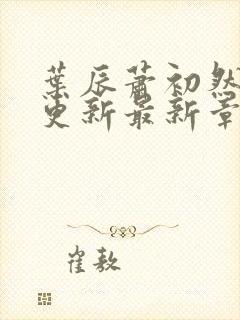 葉辰蕭初然
更新最新章
崔敖